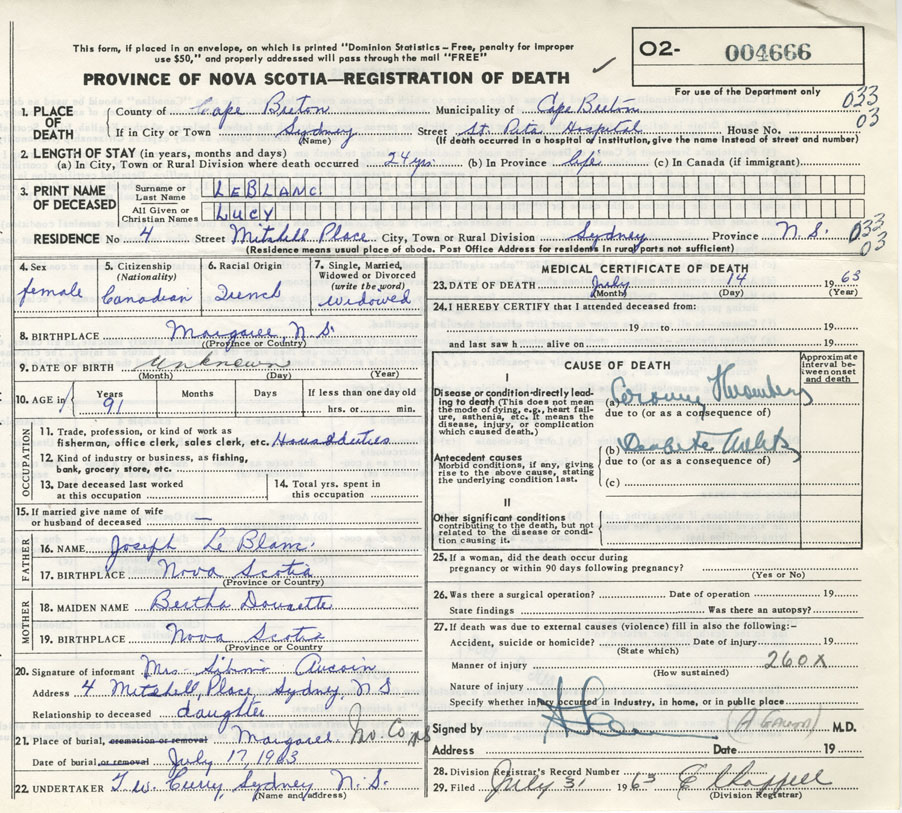 This form, if placed in an envelope, on which is printed "Dominion Statistics – Free, penalty for improper
use $50," and properly addressed will pass through the mail "FREE"
PROVINCE OF NOVA SCOTIA—REGISTRATION OF DEATH
O2- 004666
For use of the Department only
033
03
1. PLACE OF DEATH
County of Cape Breton Municipality of Cape Breton
If in City or Town Sydney Street St. Rita Hospital House No.
(Name) (If death occurred in a hospital or institution, give the name instead of street and number)
2. LENGTH OF STAY (in years, months and days)
(a) In City, Town or Rural Division where death occurred 24 yrs. (b) In Province life (c) In Canada (if immigrant)
3. PRINT NAME OF DECEASED
Surname or Last Name LEBLANC
All Given or Christian Names LUCY
RESIDENCE No 4 Street Mitchell Place City, Town or Rural Division Sydney Province N.S.
033
03
(Residence means usual place of abode. Post Office Address for residents in rural parts not sufficient)
4. Sex
female
5. Citizenship (Nationality)
Canadian
6. Racial Origin
French
7. Single, Married, Widowed or Divorced (write the word)
Widowed
8. BIRTHPLACE Margaree, N.S.
(Province or Country)
9. DATE OF BIRTH Unknown
(Month) (Day) (Year)
10. AGE in
Years Months Days If less than one day old
91 hrs. or min.
OCCUPATION
11. Trade, profession, or kind of work as
fisherman, office clerk, sales clerk, etc. Household duties
12. Kind of industry or business, as fishing,
bank, grocery store, etc.
13. Date deceased last worked at this occupation
14. Total yrs. spent in this occupation
15. If married give name of wife
or husband of deceased —
FATHER
16. NAME Joseph Le Blanc
17. BIRTHPLACE Nova Scotia
(Province or Country)
MOTHER
18. MAIDEN NAME Bertha Doucette
19. BIRTHPLACE Nova Scotia
(Province or Country
20. Signature of informant Mrs. Aucoin
Address 4 Mitchell Place, Sydney, N S
Relationship to deceased daughter
21. Place of burial, cremation or removal Margaree Inv. Co NS
Date of burial, or removal July 17, 1963
22. UNDERTAKER T. W. Curry, Sydney N.S.
(Name and address)
MEDICAL CERTIFICATE OF DEATH
23. DATE OF DEATH July 14 1963
(Month) (Day) (Year)
24. I HEREBY CERTIFY that I attended deceased from:
19 to 19
and last saw h alive on 19
CAUSE OF DEATH
Approximate interval between onset and death
I
Disease or condition directly leading to death (This does not mean the mode of dying, e.g., heart failure, asthenia, etc. It means the disease, injury, or complication which caused death.)
(a) Coronary Thrombosis
due to (or as a consequence of)
Antecedent causes
Morbid conditions, if any, giving rise to the above cause, stating the underlying condition last.
(b) Diabetes
due to (or as a consequence of)
(c)
II
Other significant conditions
contributing to the death, but not related to the disease or condition causing it.
25. If a woman, did the death occur during
pregnancy or within 90 days following pregnancy?
(Yes or No)
26. Was there a surgical operation? Date of operation 19
State findings Was there an autopsy?
27. If death was due to external causes (violence) fill in also the following:–
Accident, suicide or homicide? Date of injury 19
(State which)
Manner of injury 260X
(How sustained)
Nature of injury
Specify whether injury occurred in industry, in home, or in public place
Signed by M.D.
Address Date 19
28. Division Registrar's Record Number
29. Filed July 31 1963
(Division Registrar)